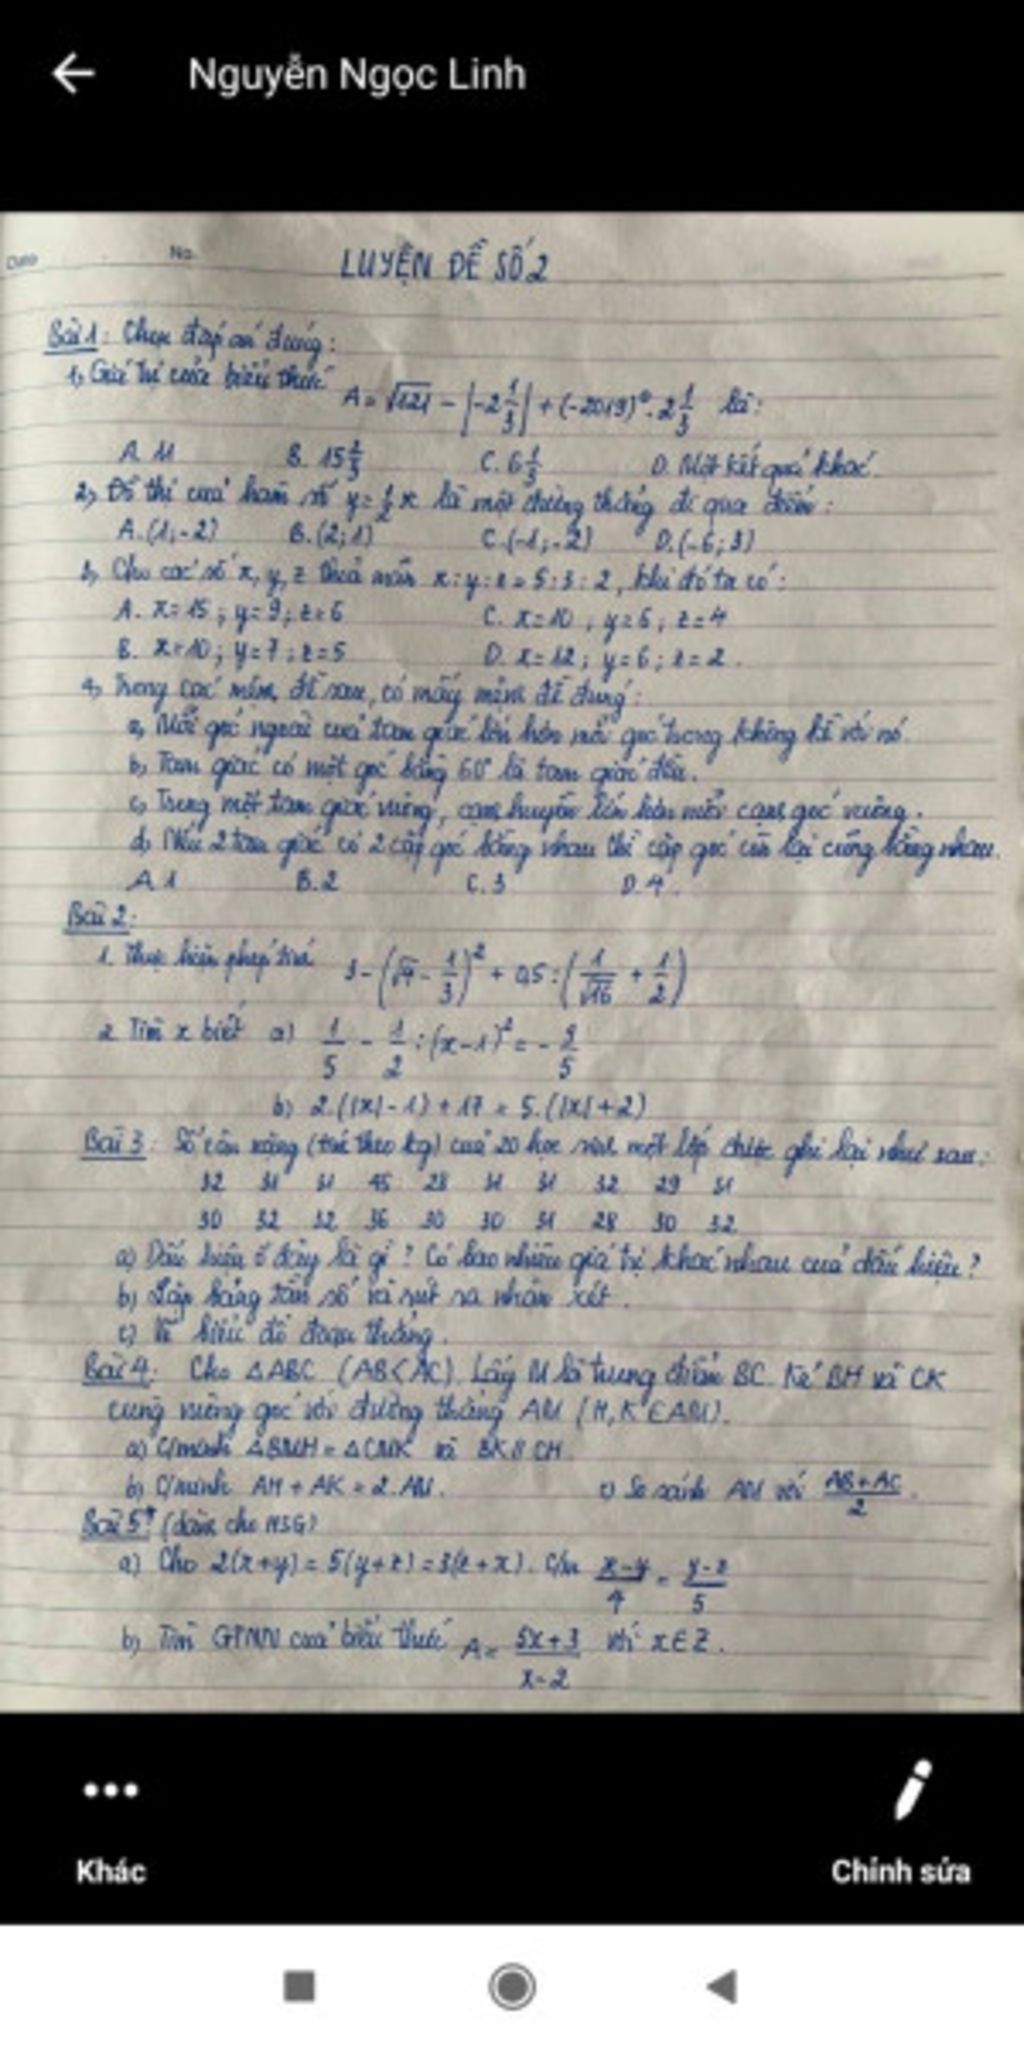 Nguyễn Ngọc Linh
Date No.
LUYỆN ĐỀ SỐ 2
Bài 1: Chọn đáp án đúng:
1, Giá trị của biểu thức A = √121 - |-2 1/3| + (-2019)⁰. 2 1/3 là:
A. 11 B. 15 C. 6 1/3 D. Một kết quả khác.
2, Đồ thị của hàm số y = 1/2 x là một đường thẳng đi qua điểm:
A. (1; -2) B. (2; 1) C. (-1; -2) D. (-6; 3)
3, Cho các số x, y, z thoả mãn x : y : z = 5 : 3 : 2, khi đó ta có:
A. x = 15 ; y = 9 ; z = 6 C. x = 10 ; y = 6 ; z = 4
B. x = 10 ; y = 7 ; z = 5 D. x = 12 ; y = 6 ; z = 2.
4, Trong các mệnh đề sau, có mấy mệnh đề đúng:
a, Mỗi góc ngoài của tam giác lớn hơn mỗi góc trong không kề với nó.
b, Tam giác có một góc bằng 60° là tam giác đều.
c, Trong một tam giác vuông, cạnh huyền lớn hơn mỗi cạnh góc vuông.
d, Nếu 2 tam giác có 2 cặp góc bằng nhau thì cặp góc còn lại cũng bằng nhau.
A. 1 B. 2 C. 3 D. 4.
Bài 2:
1. Thực hiện phép tính 3 - (√4 - 1/3)² + 0,5 : (1/√16 + 1/2)
2. Tìm x biết a) 1/5 - 1/2 : (x - 1)² = - 9/5
b) 2.(|x| - 1) + 17 = 5.(|x| + 2)
Bài 3: Số cân nặng (tính theo kg) của 20 học sinh một lớp được ghi lại như sau:
32 31 31 45 28 31 31 32 29 31
30 32 32 36 30 30 31 28 30 32
a) Dấu hiệu ở đây là gì? Có bao nhiêu giá trị khác nhau của dấu hiệu?
b) Lập bảng tần số và rút ra nhận xét.
c) Vẽ biểu đồ đoạn thẳng.
Bài 4: Cho △ABC (AB < AC). Lấy M là trung điểm BC. Kẻ BH và CK
cùng vuông góc với đường thẳng AM (H, K ∈ AM).
a) C/minh △BMH = △CMK và BK // CH.
b) C/minh AH + AK = 2.AM. c) So sánh AM với (AB + AC)/2.
Bài 5* (dành cho HSG)
a) Cho 2(x+y) = 5(y+z) = 3(z+x). C/m (x-y)/4 = (y-z)/5
b) Tìm GTNN của biểu thức A = (5x+3)/(x-2) với x ∈ Z.
Khác Chỉnh sửa